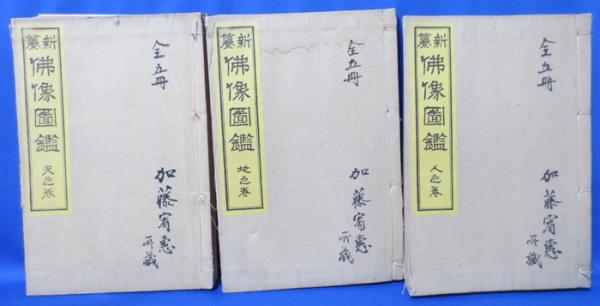 新纂
佛像圖鑑
天之卷
全五冊
加藤宥惠
所藏
新纂
佛像圖鑑
地之卷
全五冊
加藤宥惠
所藏
新纂
佛像圖鑑
人之卷
全五冊
加藤宥惠
所藏